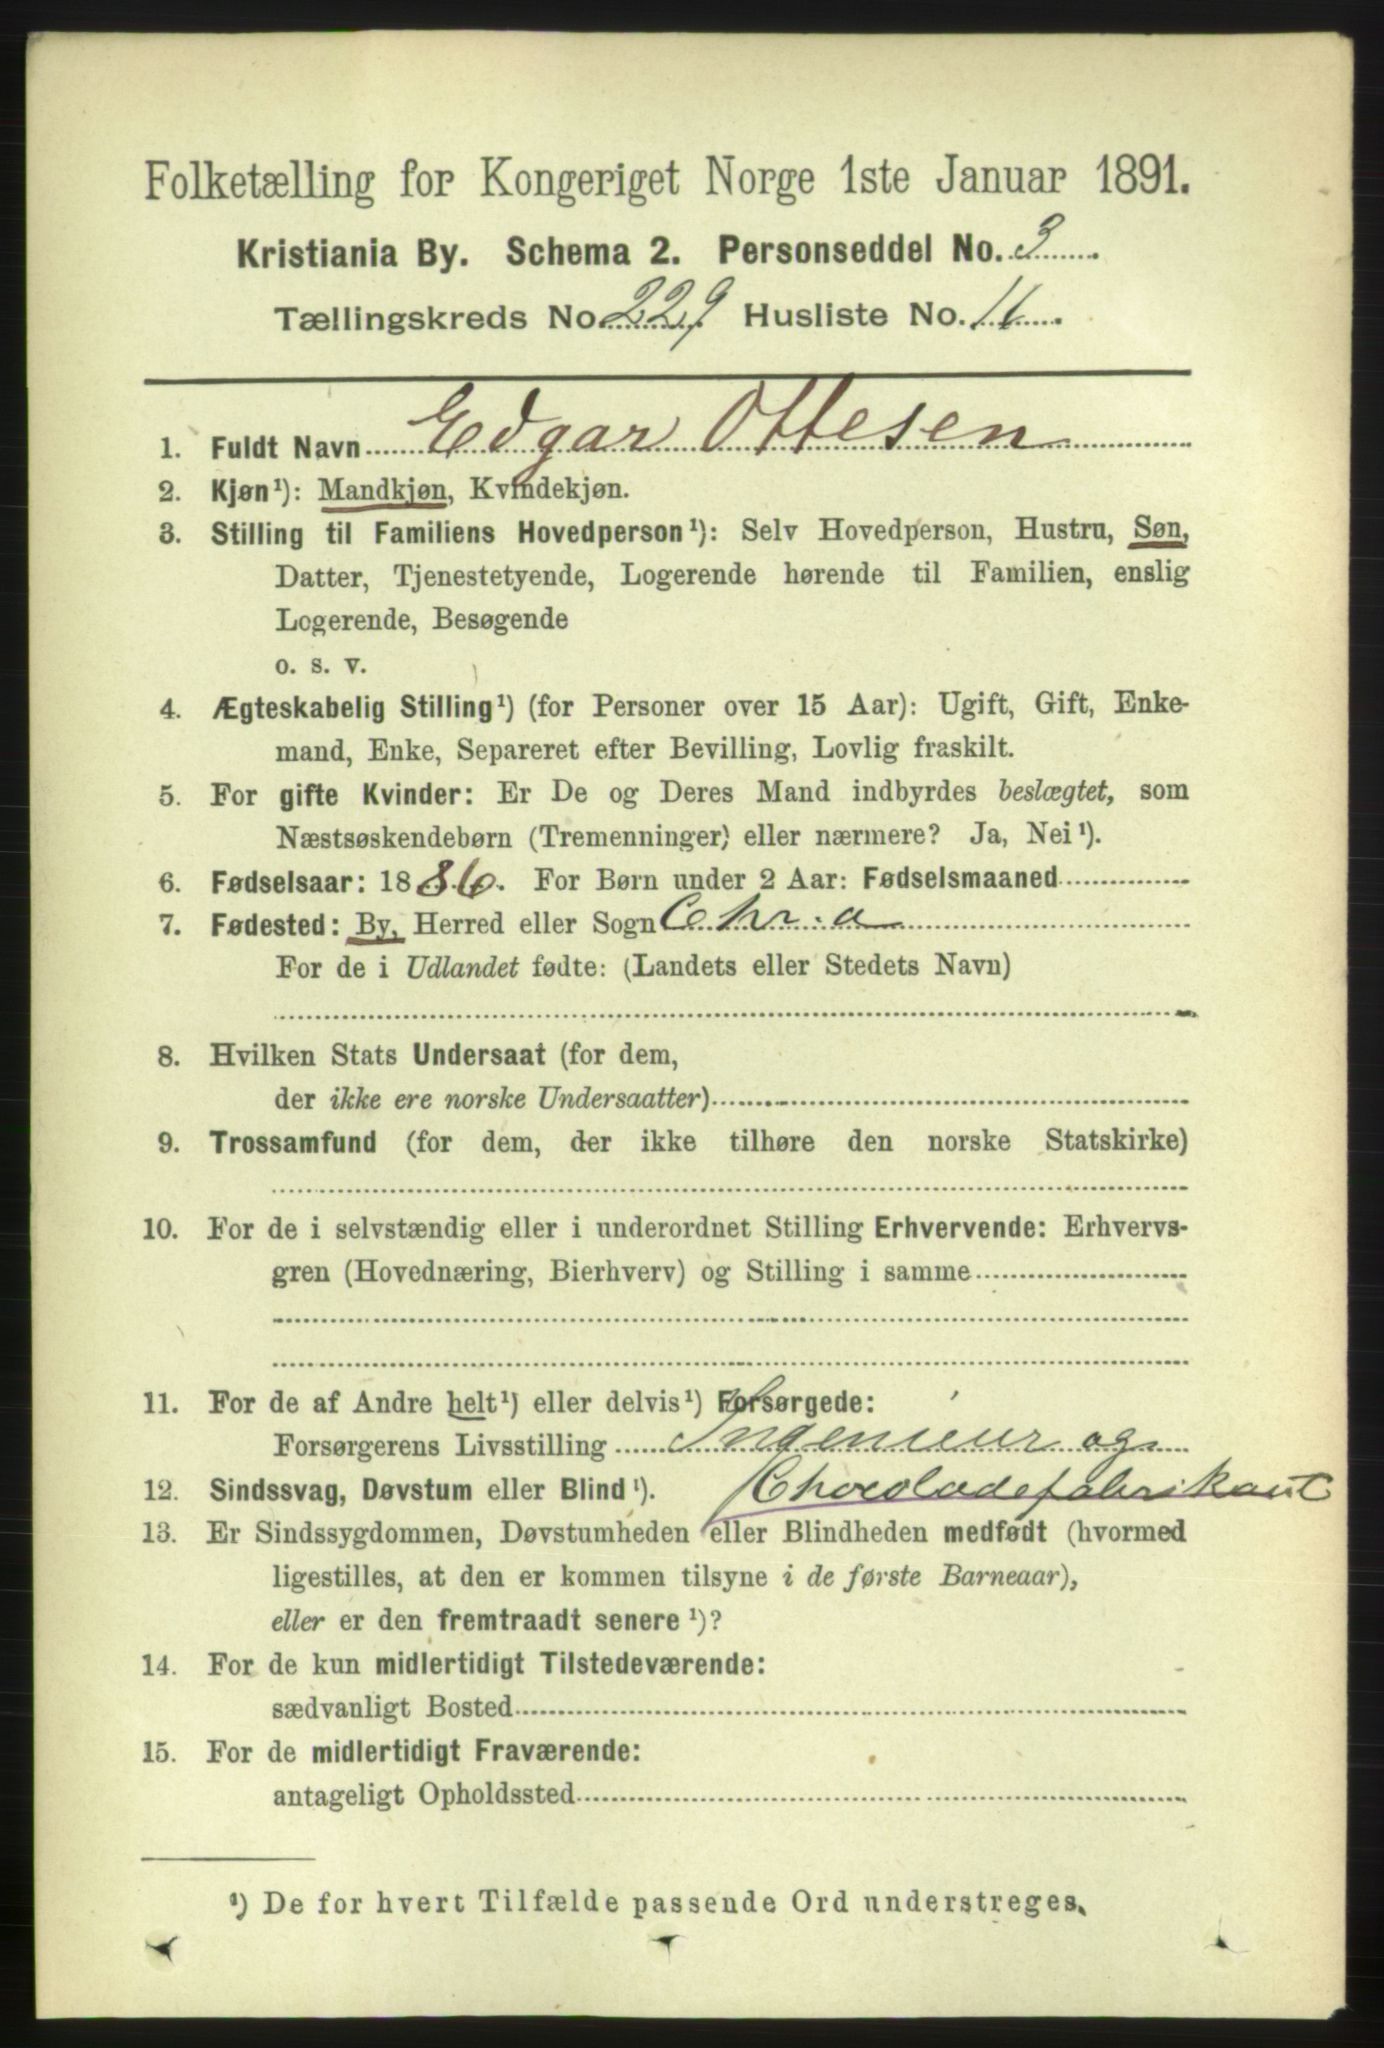 Folketælling for Kongeriget Norge 1ste Januar 1891.
Kristiania By. Schema 2. Personseddel No. 3
Tællingskreds No. 229 Husliste No. 11.
1. Fuldt Navn Edgar Ottesen
2. Kjøn¹): Mandkjøn, Kvindekjøn.
3. Stilling til Familiens Hovedperson¹): Selv Hovedperson, Hustru, Søn,
Datter, Tjenestetyende, Logerende hørende til Familien, enslig
Logerende, Besøgende
o. s. v.
4. Ægteskabelig Stilling¹) (for Personer over 15 Aar): Ugift, Gift, Enke-
mand, Enke, Separeret efter Bevilling, Lovlig fraskilt.
5. For gifte Kvinder: Er De og Deres Mand indbyrdes beslægtet, som
Næstsøskendebørn (Tremenninger) eller nærmere? Ja, Nei¹).
6. Fødselsaar: 1886. For Børn under 2 Aar: Fødselsmaaned
7. Fødested: By, Herred eller Sogn Chr.a
For de i Udlandet fødte: (Landets eller Stedets Navn)
8. Hvilken Stats Undersaat (for dem,
der ikke ere norske Undersaatter)
9. Trossamfund (for dem, der ikke tilhøre den norske Statskirke)
10. For de i selvstændig eller i underordnet Stilling Erhvervende: Erhvervs-
gren (Hovednæring, Bierhverv) og Stilling i samme
11. For de af Andre helt¹) eller delvis¹) Forsørgede:
Forsørgerens Livsstilling Ingenieur og
12. Sindssvag, Døvstum eller Blind¹). Chocoladefabrikant
13. Er Sindssygdommen, Døvstumheden eller Blindheden medfødt (hvormed
ligestilles, at den er kommen tilsyne i de første Barneaar),
eller er den fremtraadt senere¹)?
14. For de kun midlertidigt Tilstedeværende:
sædvanligt Bosted
15. For de midlertidigt Fraværende:
antageligt Opholdssted
¹) De for hvert Tilfælde passende Ord understreges.